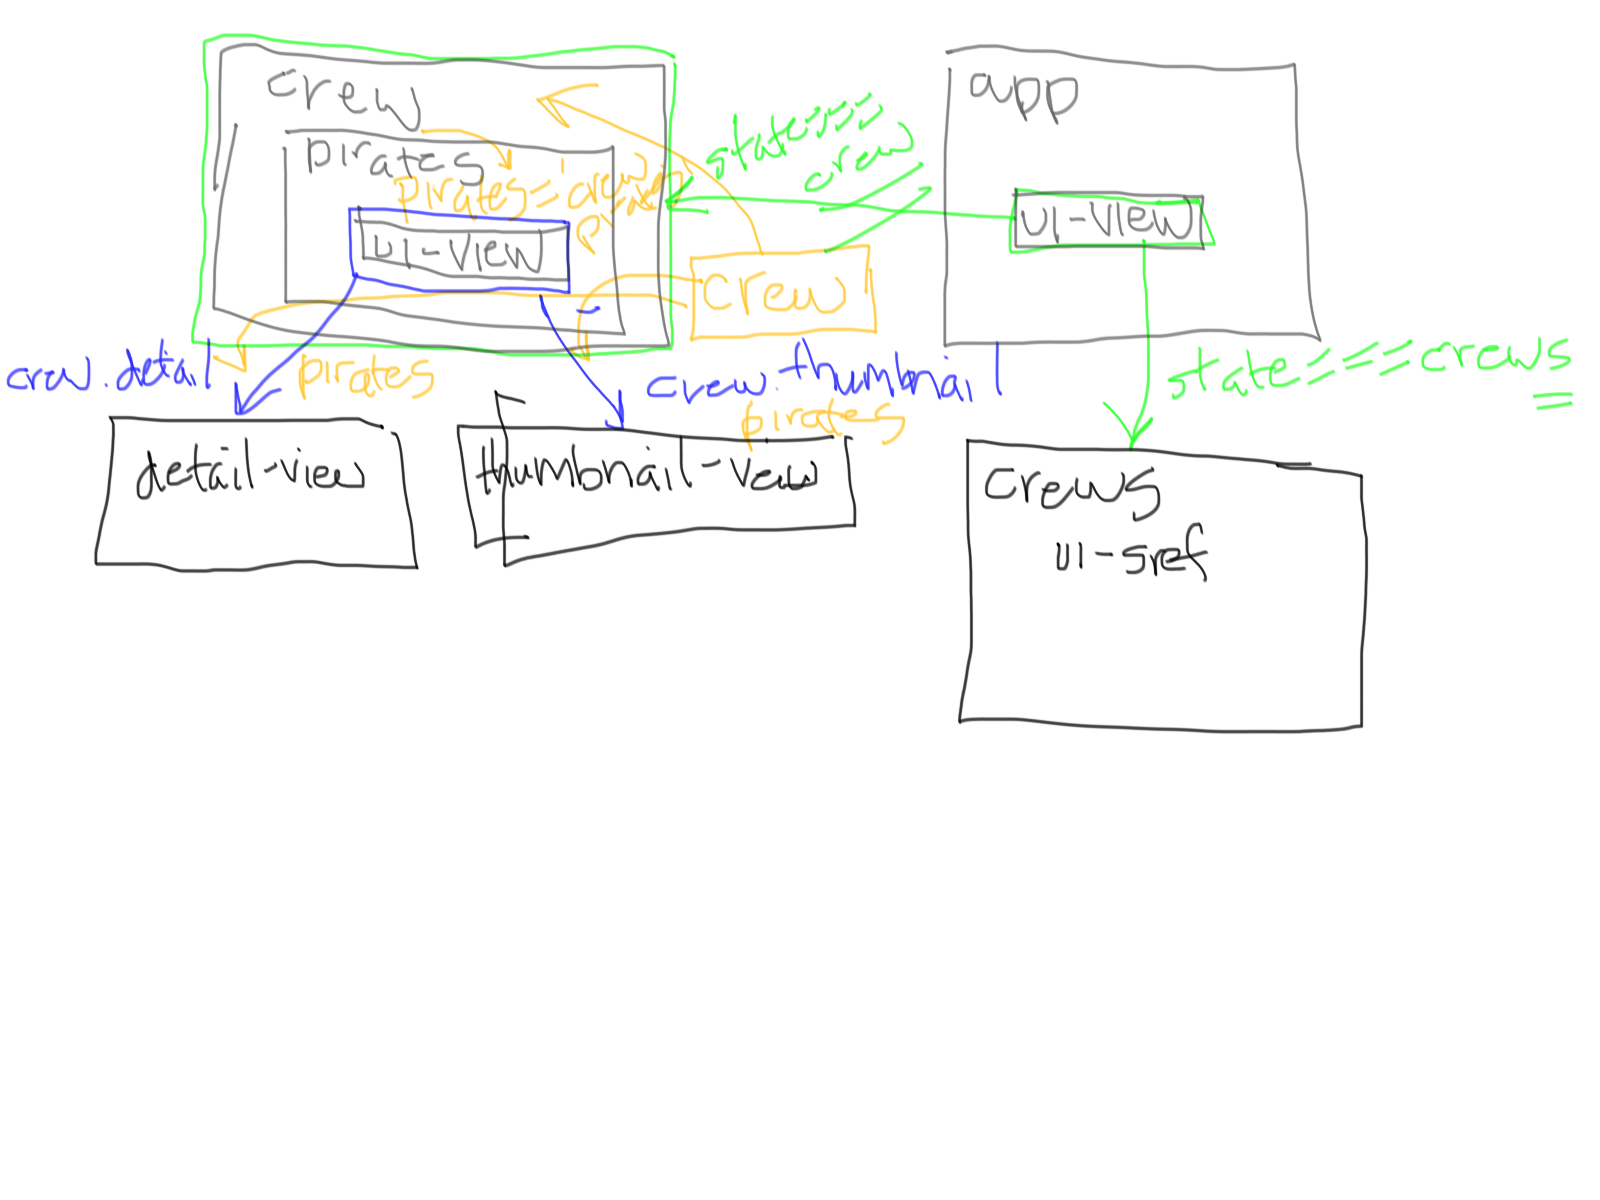 crew
pirates
pirates='crew
pirates'
ui-view
state===
crew
app
ui-view
crew
crew.detail
pirates
crew.thumbnail
pirates
state===crews
detail-view
thumbnail-vew
crews
ui-sref